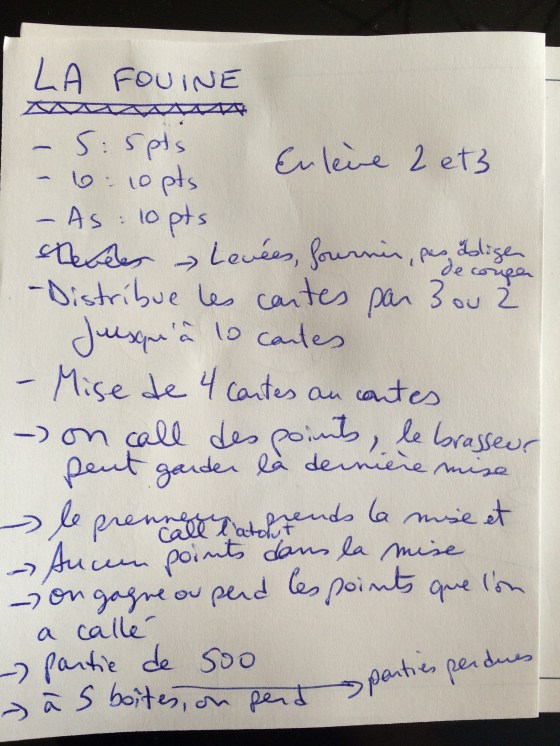 LA FOUINE
- 5 : 5 pts
Enlève 2 et 3
- 10 : 10 pts
- As : 10 pts
→ Levées, fournir, pas obliger
de couper
- Distribue les cartes par 3 ou 2
jusqu'à 10 cartes
- Mise de 4 cartes au
→ on call des points, le brasseur
peut garder la dernière mise
→ le prenneur prends la mise et
call l'atout
→ Aucun points dans la mise
→ on gagne ou perd les points que l'on
a callé
→ partie de 500
→ à 5 boîtes, on perd → parties perdues